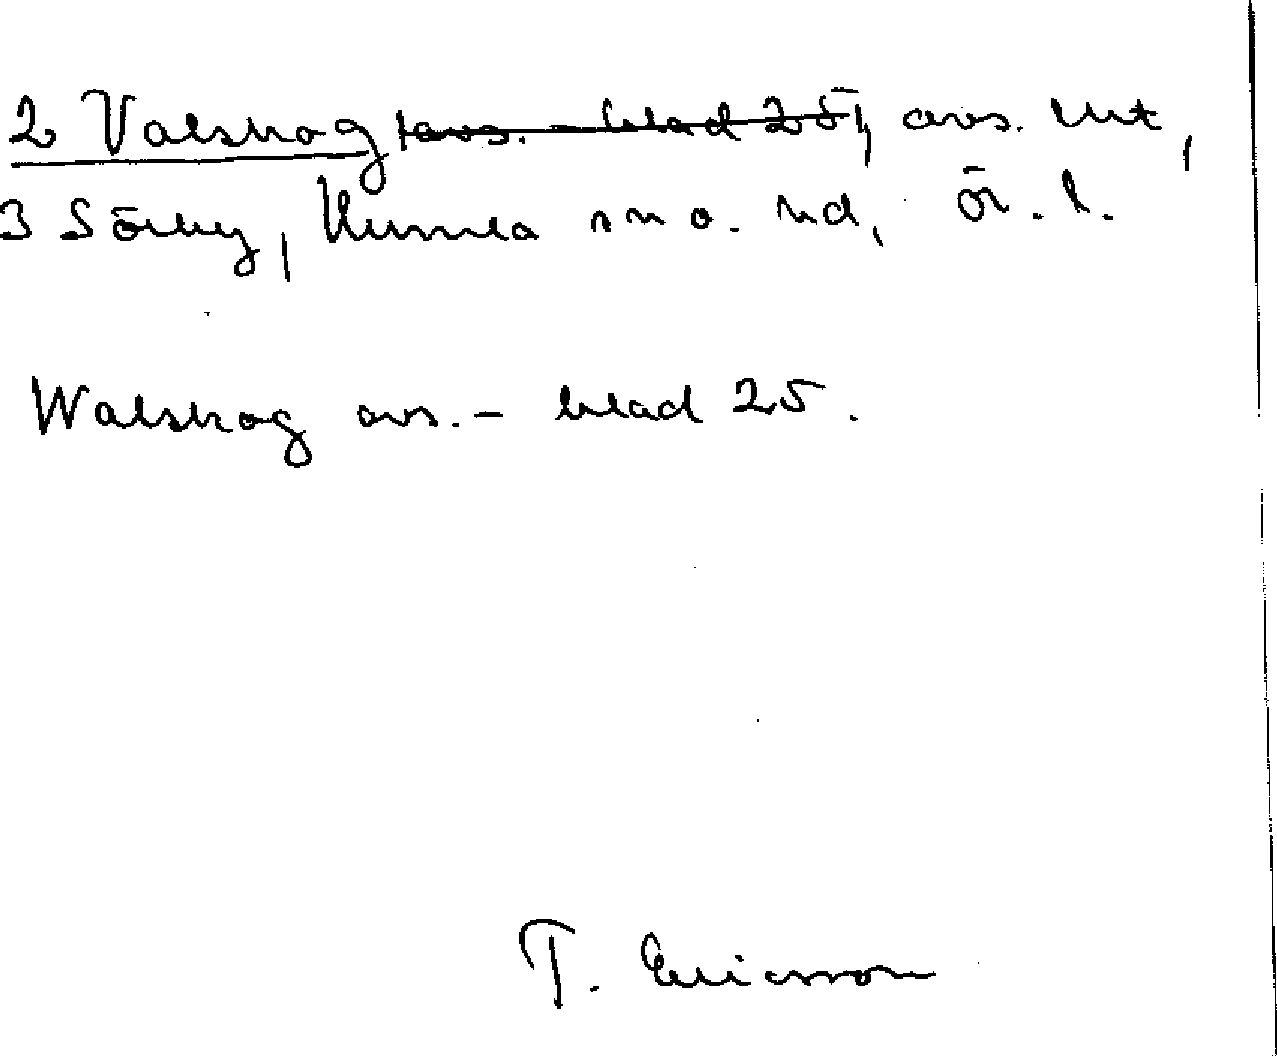 2 Valskog (avs. - blad 25), avs. lht,
3 Sörby, Kumla sn o. hd, Ör. l.
Walskog avs. - blad 25.
T. Ericsson